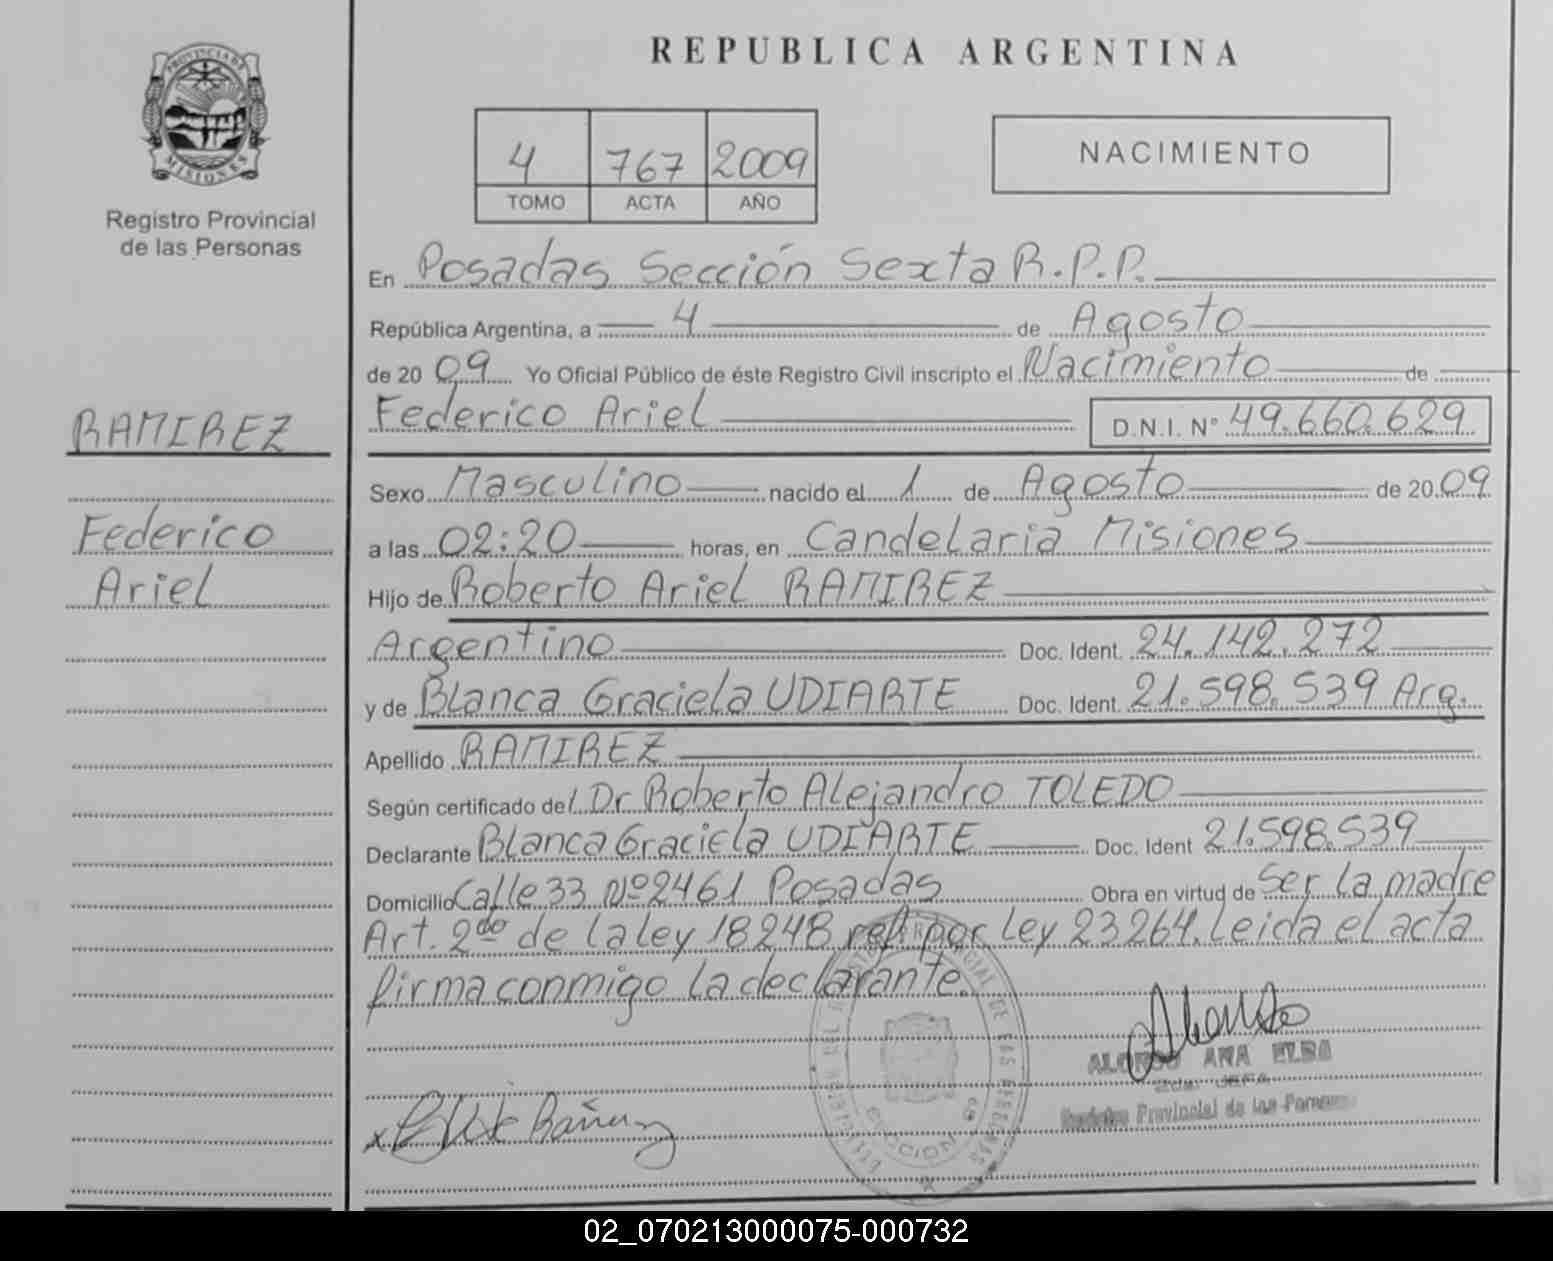 REPUBLICA ARGENTINA
PROVINCIA DE
MISIONES
Registro Provincial
de las Personas
4 767 2009
TOMO ACTA AÑO
NACIMIENTO
En Posadas Sección Sexta R.P.P.
República Argentina, a 4 de Agosto
de 20 09 Yo Oficial Público de éste Registro Civil inscripto el Nacimiento de
RAMIREZ
Federico Ariel D.N.I. N° 49.660.629
Sexo Masculino nacido el 1 de Agosto de 20 09
Federico
a las 02:20 horas, en Candelaria Misiones
Ariel
Hijo de Roberto Ariel RAMIREZ
Argentino Doc. Ident. 24.142.272
y de Blanca Graciela UDIARTE Doc. Ident. 21.598.539 Arg.
Apellido RAMIREZ
Según certificado del Dr Roberto Alejandro TOLEDO
Declarante Blanca Graciela UDIARTE Doc. Ident 21.598.539
Domicilio Calle 33 Nº 2461 Posadas Obra en virtud de Ser la madre
Art. 2do de la ley 18248 ref. por Ley 23264. Leida el acta
firma conmigo la declarante.
ALONSO ANA ELBA
2da. JEFA
Registro Provincial de las Personas
02_070213000075-000732